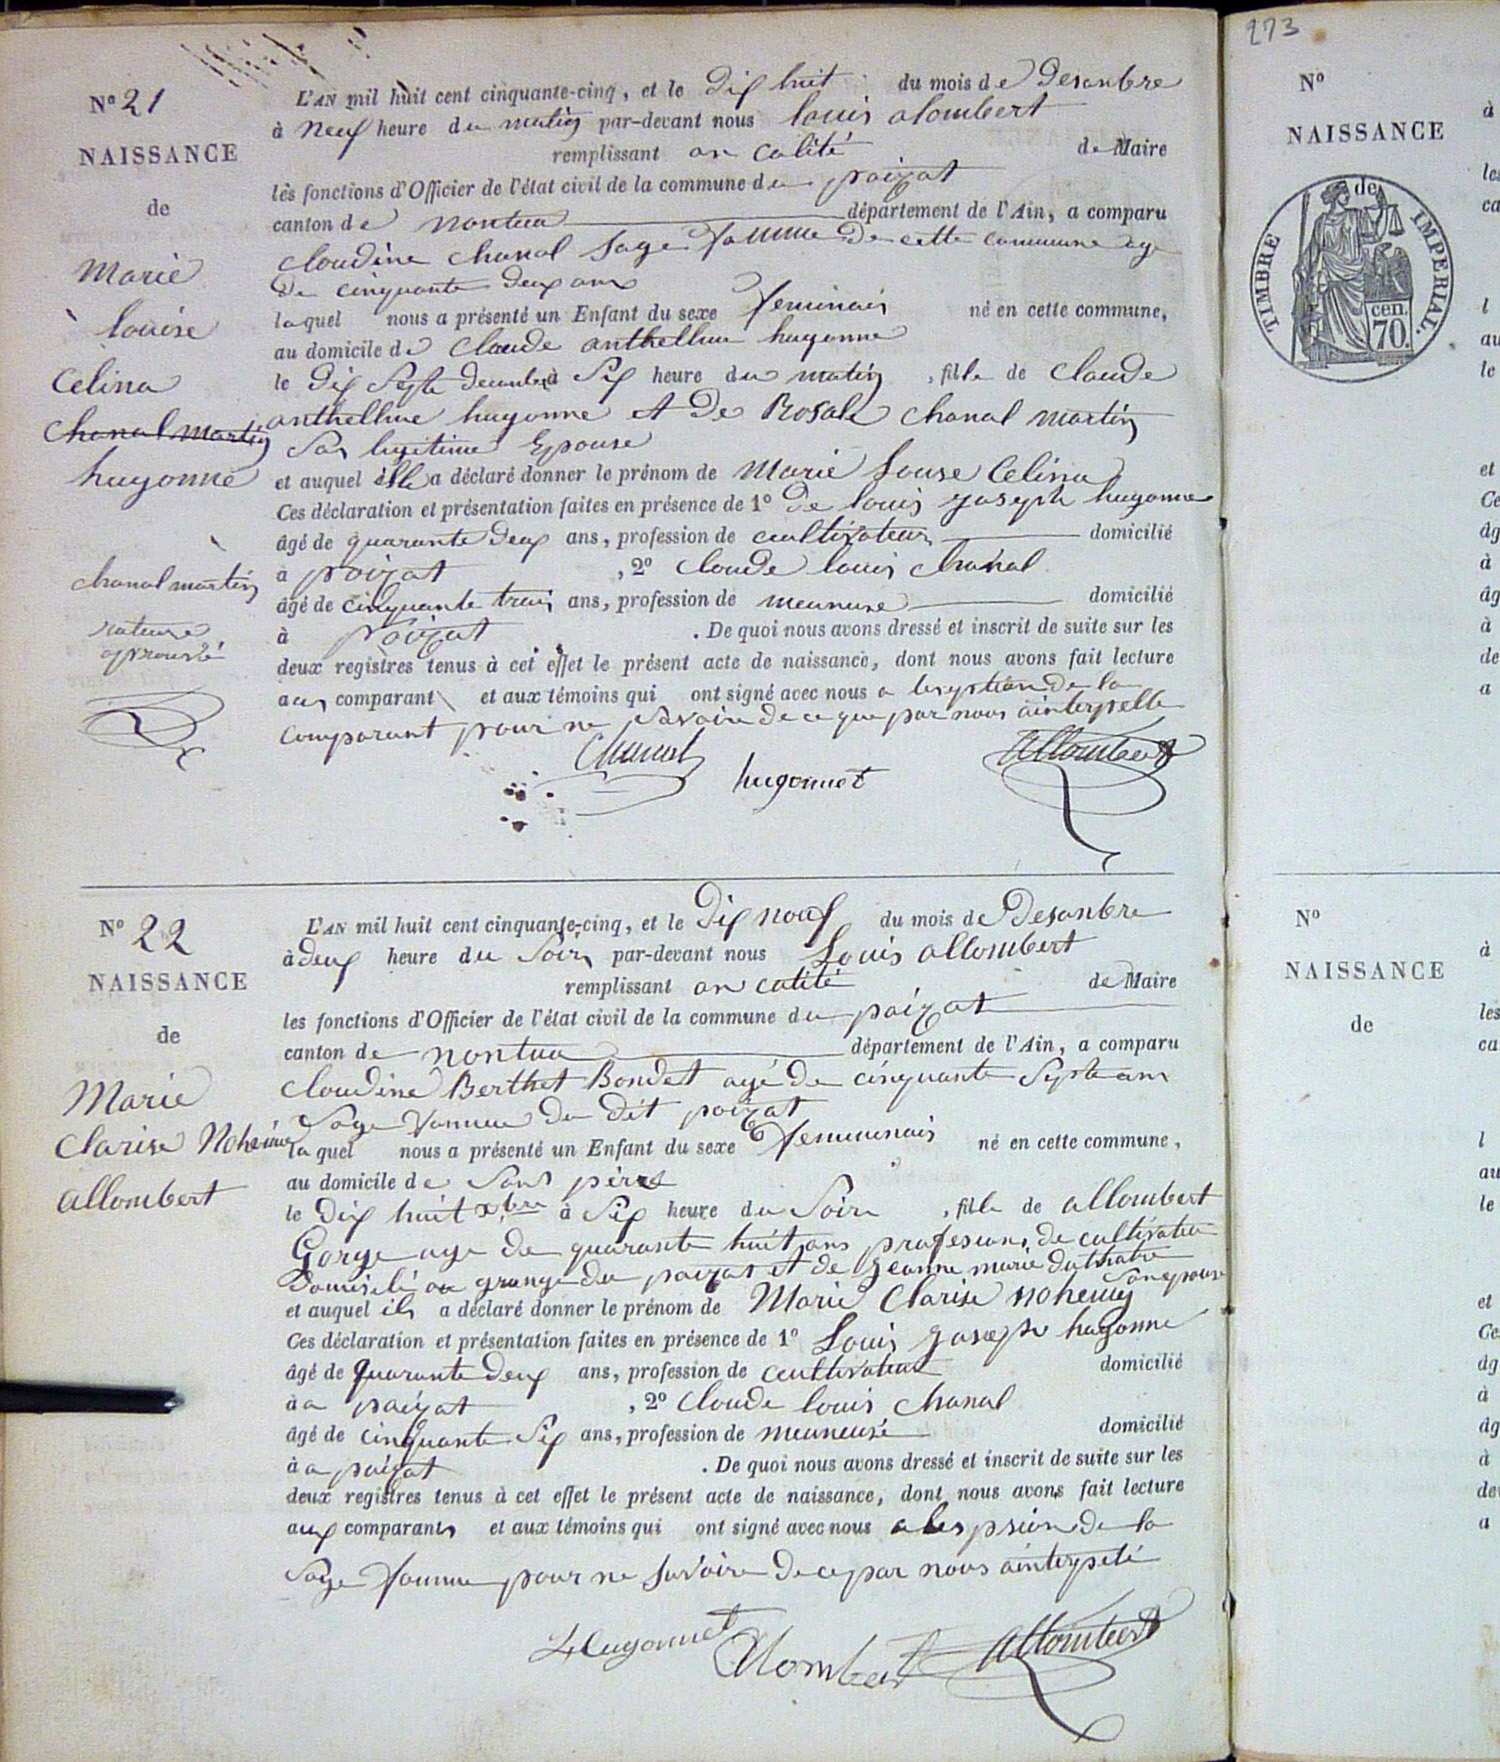 273
N° 21
NAISSANCE
de
Marie
louise
Celina
chanal martin
hugonne
chanal martin
rature
aprouvé
L'AN mil huit cent cinquante-cinq, et le dix huit du mois de desanbre
à neuf heure du matin par-devant nous louis alombert
remplissant an calité de Maire
les fonctions d'Officier de l'état civil de la commune du poizat
canton de nontua département de l'Ain, a comparu
claudine chanal sage famme de cette commune age
de cinquante deux ans
laquel nous a présenté un Enfant du sexe feminain né en cette commune,
au domicile de Claude anthellme hugonne
le dix septe decembre à six heure du matin, fille de Claude
anthellme hugonne et de Rosale chanal martin
sas legitime Epouse
et auquel elle a déclaré donner le prénom de Marie Louse Celina
Ces déclaration et présentation faites en présence de 1° de louis joseph hugonne
âgé de quarante deux ans, profession de cultivateur domicilié
à poizat, 2° Claude louis chanal
âgé de cinquante trais ans, profession de meunuse domicilié
à poizat. De quoi nous avons dressé et inscrit de suite sur les
deux registres tenus à cet effet le présent acte de naissance, dont nous avons fait lecture
aux comparant et aux témoins qui ont signé avec nous a lesption de la
comparant pour ne savoire de ce que par nous ainterpelle
Chanal hugonnet Allombert
N° 22
NAISSANCE
de
Marie
Clarise Nohemie
allombert
L'AN mil huit cent cinquante-cinq, et le dix noeuf du mois de Desanbre
à deux heure du Soir par-devant nous Louis allombert
remplissant an calité de Maire
les fonctions d'Officier de l'état civil de la commune du poizat
canton de nontua département de l'Ain, a comparu
claudine Berthet Bondet agé de cinquante septe ans
sage famme du dit poizat
laquel nous a présenté un Enfant du sexe femminain né en cette commune,
au domicile de sont père
le dix huit xbre à six heure du Soir, fille de allombert
Gorge age de quarante huit ans profesions de cultivateur
domisilé au grange du poizat et de jeanne marie son epouse
et auquel ils a déclaré donner le prénom de Marie Clarise nohemy
Ces déclaration et présentation faites en présence de 1° Louis joseph hugonne
âgé de quarante deux ans, profession de cultivateur domicilié
à a poizat, 2° Claude louis chanal
âgé de cinquante six ans, profession de meuneuse domicilié
à a poizat. De quoi nous avons dressé et inscrit de suite sur les
deux registres tenus à cet effet le présent acte de naissance, dont nous avons fait lecture
aux comparants et aux témoins qui ont signé avec nous a lespsion de la
sage famme pour ne savoire de ce par nous ainterpelé
L hugonnet Alombert Allombert
N°
NAISSANCE
de
TIMBRE IMPERIAL.
cen.
70.
à
les
ca
l
au
le
et
Ce
âg
à
âg
à
de
a
N°
NAISSANCE
de
à
les
ca
l
au
le
et
Ce
âg
à
âg
à
de
a